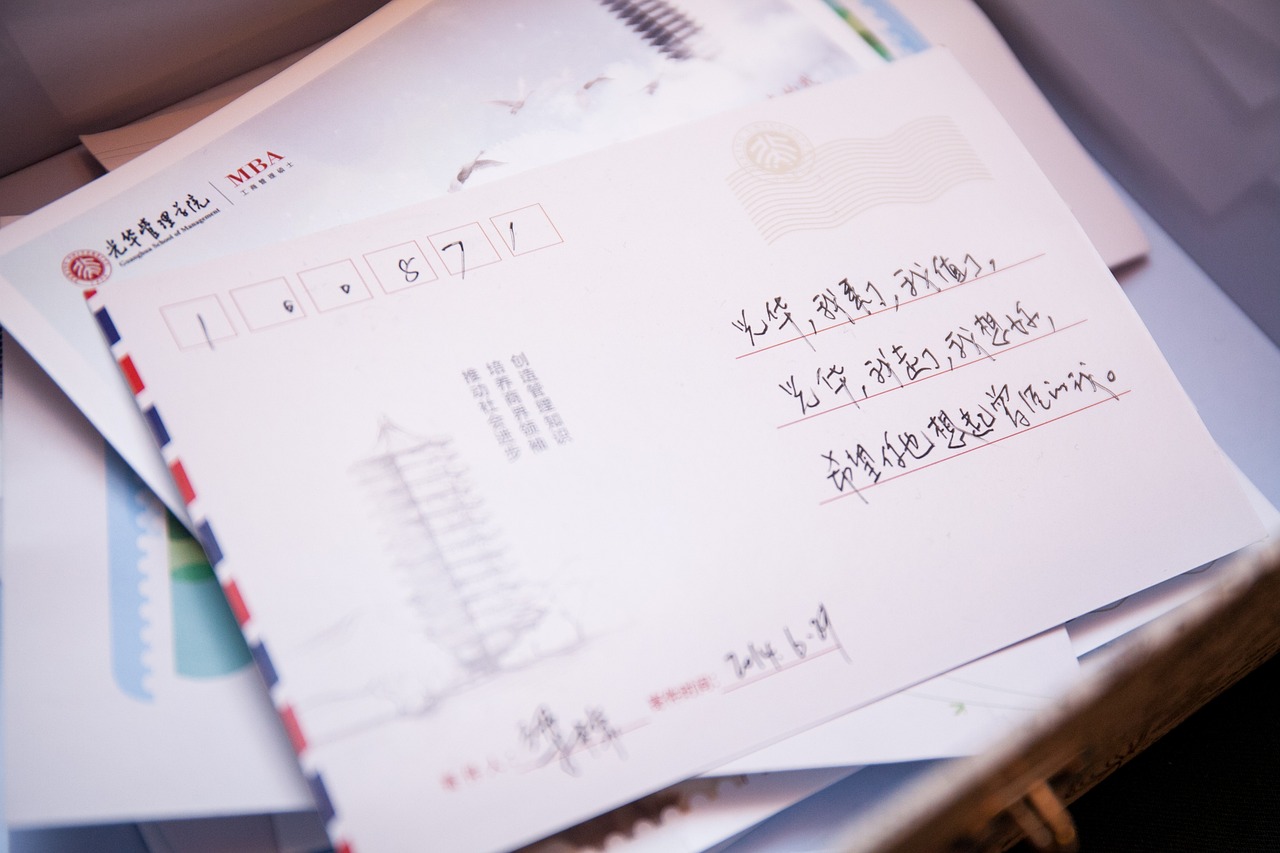 光华管理学院
Guanghua School of Management
MBA
工商管理硕士
100871
创造管理知识
培养商界领袖
推动社会进步
光华,我来了,我值了,
光华,我走了,我想你,
希望你也想起曾经的我。
2014.6.29